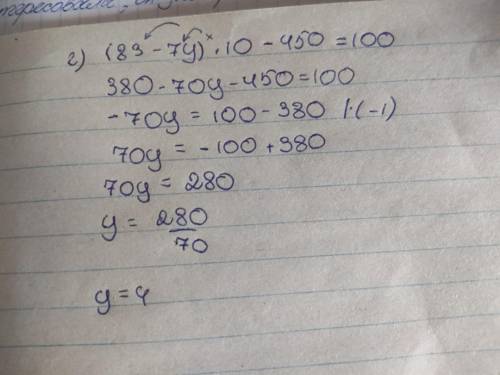 г) (83 - 7y) · 10 - 450 = 100
380 - 70y - 450 = 100
- 70y = 100 - 380 | · (-1)
70y = - 100 + 380
70y = 280
y = 280/70
y = 4